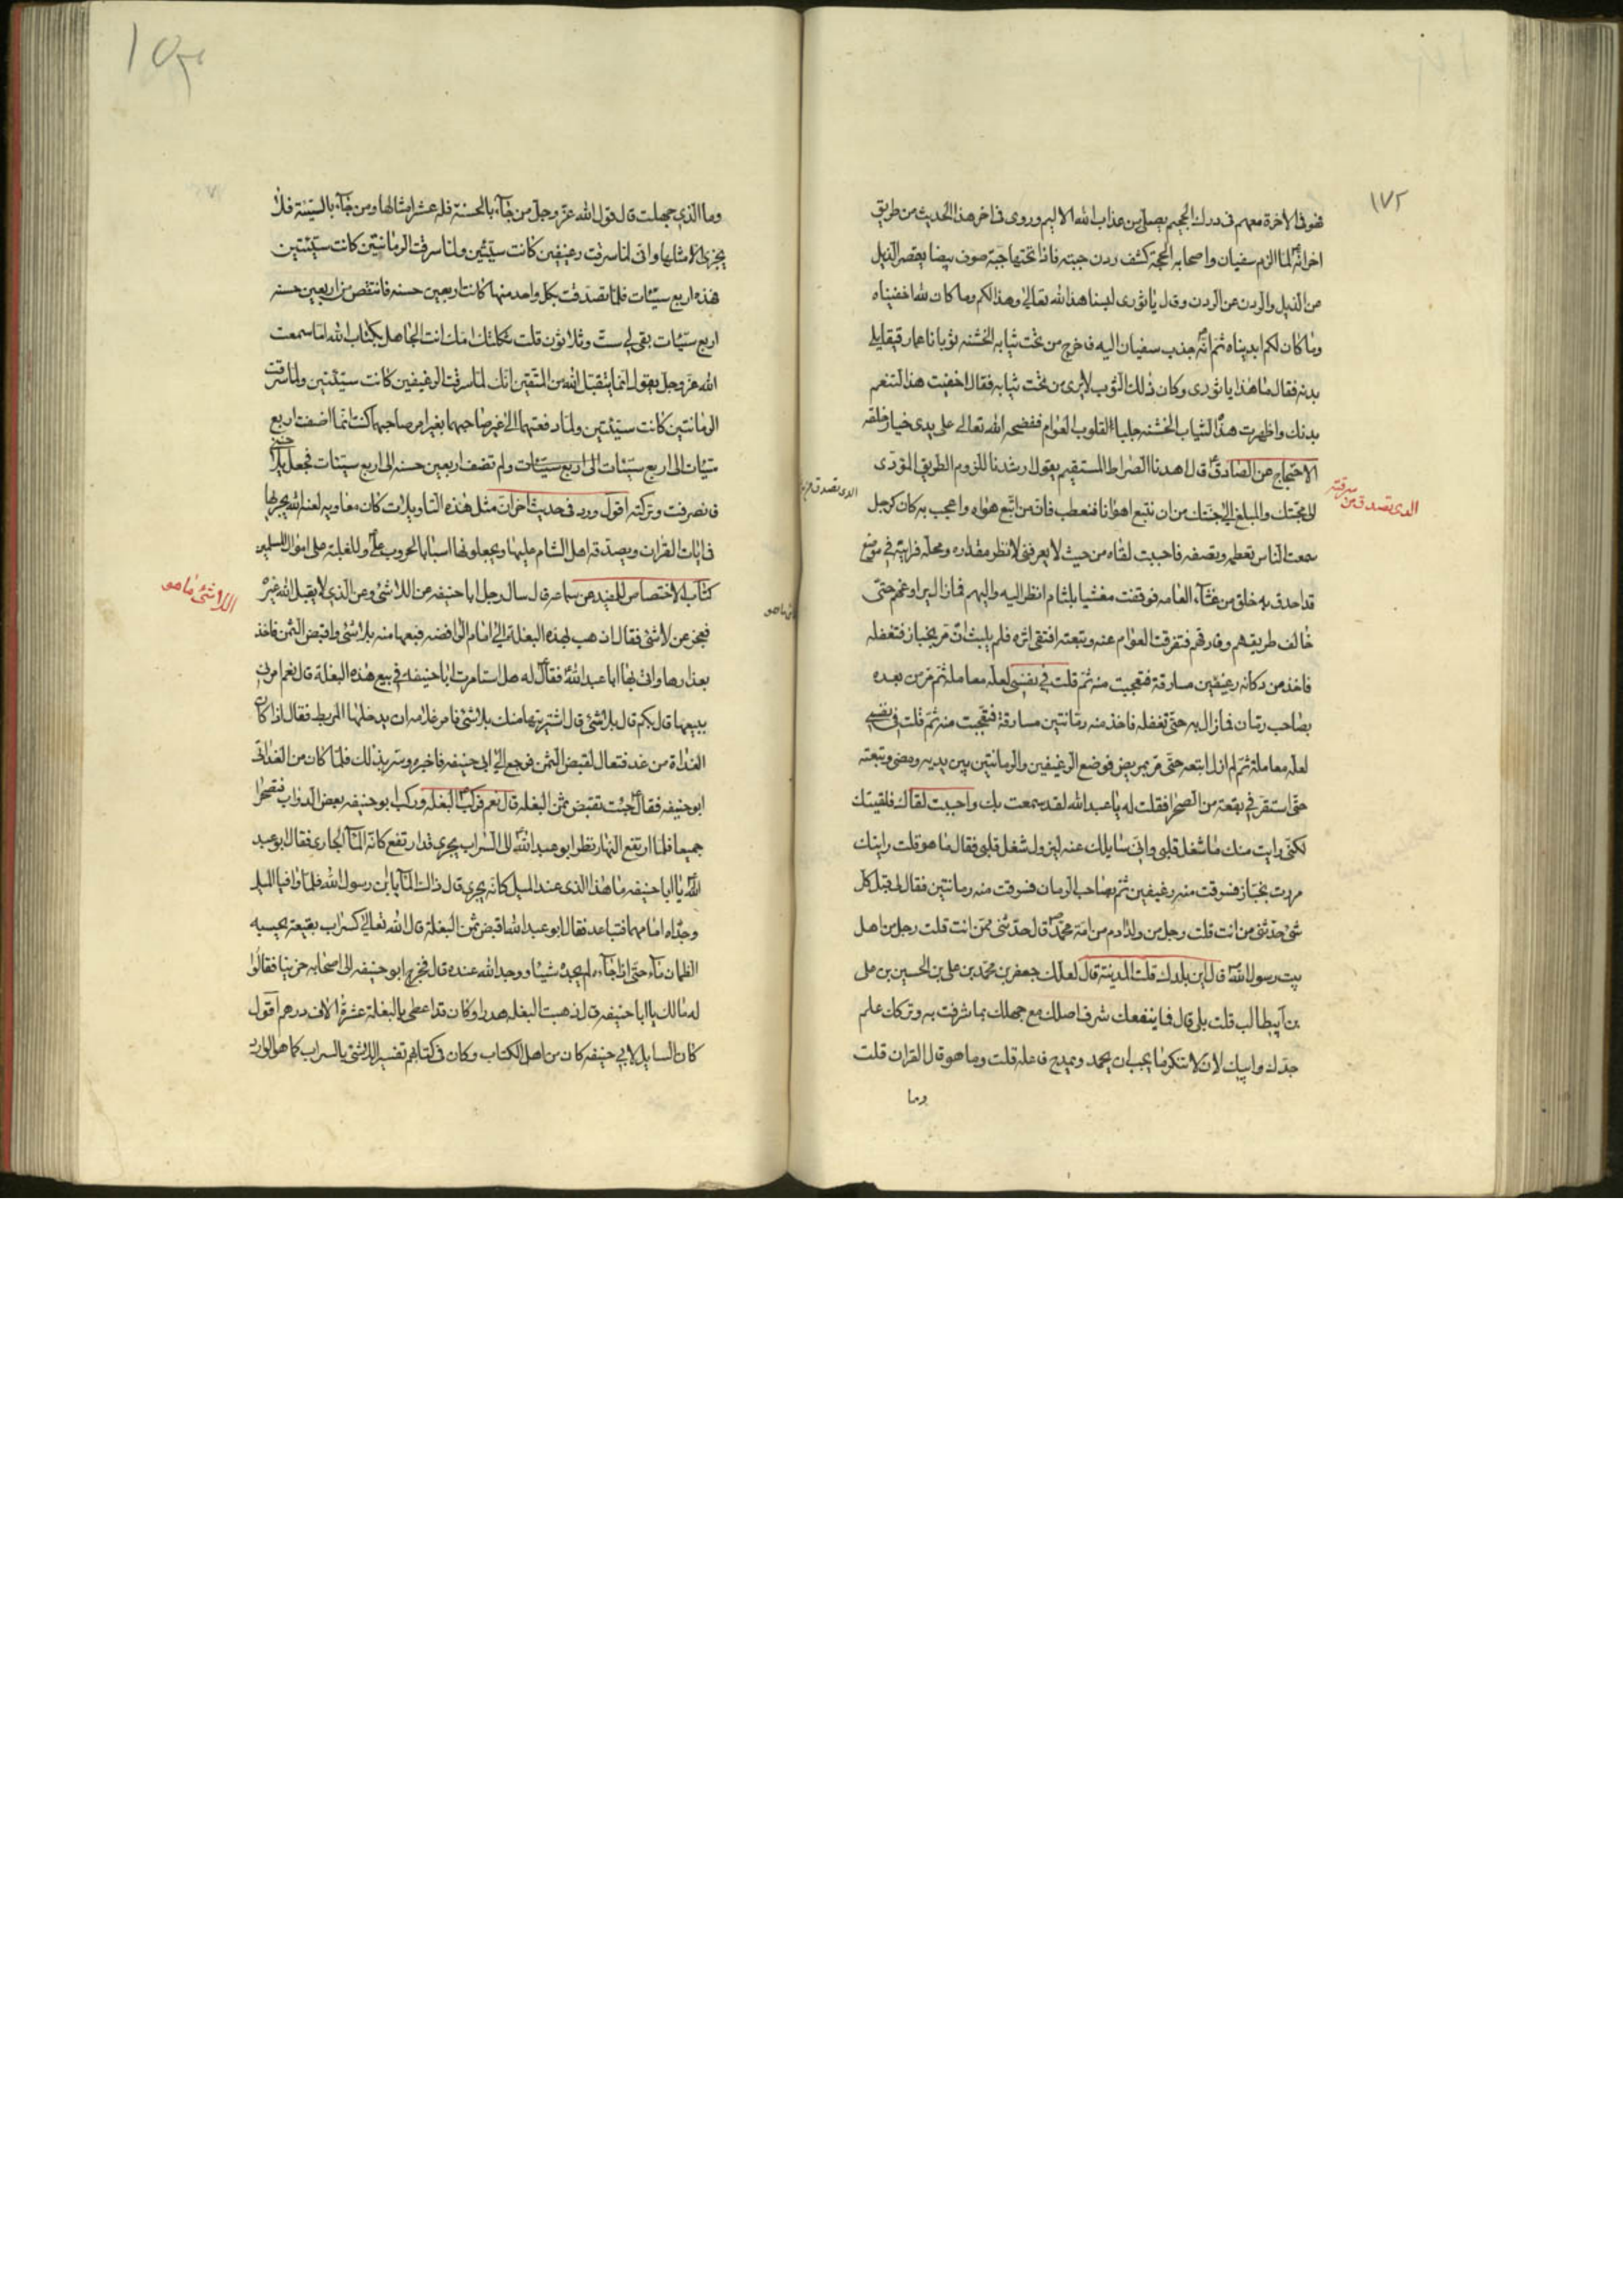 ١٧٢
فهو في الاخرة معهم في درك الجحيم يصلى من عذاب الله الاليم وروى في اخر هذا الحديث من طريق
اخر انه لما الزم سفيان واصحابه الحجة كشف ردن جبته فاذا تحتها جبة صوف بيضا يقصر الذيل
من الذيل والردن عن الردن وقال يا ثورى لبسنا هذا لله تعالى وهذا لكم وما كان لله اخفيناه
وما كان لكم ابديناه ثم انه جذب سفيان اليه فاخرج من تحت ثيابه الخشنه ثوبا ناعما رقيقا يلى
بدنه فقال ما هذا يا ثورى وكان ذلك الثوب لا يرى من تحت ثيابه فقال اخفيت هذا لتنعم
بدنك واظهرت هذه الثياب الخشنه جلبا لقلوب العوام ففضحه الله تعالى على يدى خيار خلقه
الاحتجاج عن الصادق قال اهدنا الصراط المستقيم يقول ارشدنا للزوم الطريق المؤدى
الى محبتك والمبلغ الى جنتك من ان نتبع اهوانا فنعطب فان من اتبع هواه واعجب به كان كرجل
الذى تصدق من سرقته
سمعت الناس تعظمه وتصفه فاحببت لقاه من حيث لا يعرفنى لانظر مقداره ومحله فرايته في موضع
قد احدق به خلق من غثآء العامه فوقفت مغشيا بلثام انظر اليه واليهم فمازال يراوغهم حتى
خالف طريقهم وفارقهم فتفرقت العوام عنه وتبعته اقتفى اثره فلم يلبث ان مر بخباز فتغفله
فاخذ من دكانه رغيفين مسارقة فتعجبت منه ثم قلت في نفسى لعله معاملة ثم مر من بعده
بصاحب رمان فمازال به حتى تغفله فاخذ منه رمانتين مسارقة فتعجبت منه ثم قلت في نفسي
لعله معاملة ثم لم ازل اتبعه حتى مر بمريض فوضع الرغيفين والرمانتين بين يديه ومضى وتبعته
حتى استقر في بقعة من الصحرا فقلت له يا عبد الله لقد سمعت بك واحببت لقاك فلقيتك
لكنى رايت منك ما شغل قلبى وانى سايلك عنه ليزول شغل قلبى فقال ما هو قلت رايتك
مررت بخباز فسرقت منه رغيفين ثم بصاحب الرمان فسرقت منه رمانتين فقال لى قبل كل
شئ حدثنى من انت قلت رجل من ولد ادم من امة محمد قال حدثنى ممن انت قلت رجل من اهل
بيت رسول الله قال اين بلدك قلت المدينة قال لعلك جعفر بن محمد بن على بن الحسين بن على
بن ابيطالب قلت بلى قال فما ينفعك شرف اصلك مع جهلك بما شرفت به وتركك علم
جدك وابيك لان لا تنكر ما يجب ان يحمد ويمدح فاعله قلت وما هو قال القران قلت
وما
وما الذي جهلت قال قول الله عز وجل من جآء بالحسنة فله عشر امثالها ومن جآء بالسيئة فلا
يجزى الا مثلها وانى لما سرقت رغيفين كانت سيئتين ولما سرقت الرمانتين كانت سيئتين
فهذه اربع سيئات فلما تصدقت بكل واحد منهما كانت اربعين حسنه فانتقص من اربعين حسنه
اربع سيئات بقى لي ست وثلاثون قلت ثكلتك امك انت الجاهل بكتاب الله اما سمعت
الله عز وجل يقول انما يتقبل الله من المتقين انك لما سرقت الرغيفين كانت سيئتين ولما سرقت
الرمانتين كانت سيئتين ولما دفعتهما الى غير صاحبهما بغير امر صاحبهما كنت انما اضفت اربع
سيئات الى اربع سيئات الى اربع سيئات ولم تضف اربعين حسنه الى اربع سيئات فجعل يلاحظني
فانصرفت وتركته اقول ورد في حديث اخر ان مثل هذه التاويلات كان معاويه لعنه الله يجريها
في ايات القران ويصدقه اهل الشام عليها ويجعلونها اسبابا لحروب علي وللغلبة على اموال المسلمين
كتاب الاختصاص للمفيد عن سماعه قال سال رجل ابا حنيفه عن اللاشئ وعن الذي لا يقبل الله غيره
اللاشئ ما هو
فعجز عن لاشئ فقال اذهب بهذه البغلة الى امام الرافضه فبعها منه بلاشئ واقبض الثمن فاخذ
بعذارها واتى بها ابا عبد الله فقال له هل استامرت ابا حنيفه في بيع هذه البغلة قال نعم امرنى
ببيعها قال بكم قال بلاشئ قال اشتريتها منك بلاشئ فامر غلامه ان يدخلها المربط فقال اذا كان
الغداة من غد فتعال لقبض الثمن فرجع الى ابى حنيفه فاخبره وسر بذلك فلما كان من الغد اتى
ابو حنيفه فقال جئت تقبض ثمن البغله قال نعم فركب البغله وركب ابو حنيفه بعض الدواب فتصحرا
جميعا فلما ارتفع النهار نظر ابو عبد الله الى السراب يجري قد ارتفع كانه المآء الجارى فقال ابو عبد
الله يا ابا حنيفه ما هذا الذى عند الميل كانه يجرى قال ذاك المآء يابن رسول الله فلما وافيا الميل
وجداه امامهما فتباعد فقال ابو عبد الله اقبض ثمن البغلة قال الله تعالى كسراب بقيعة يحسبه
الظمان مآء حتى اذا جآءه لم يجده شيئا ووجد الله عنده قال فخرج ابو حنيفه الى اصحابه حزينا فقالوا
له مالك يا ابا حنيفه قال ذهبت البغله هدرا وكان قد اعطى بالبغلة عشرة الاف درهم اقول
كان السايل لابي حنيفه كان من اهل الكتاب وكان في كتابهم تفسير اللاشئ بالسراب كما هو الوارد